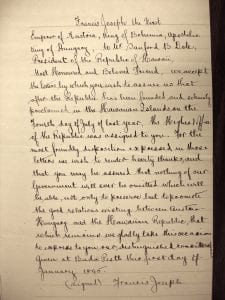 Francis Joseph the First
Emperor of Austria, King of Bohemia, Apostolic
King of Hungary, to Mr. Sanford B. Dole,
President of the Republic of Hawaii,
Most Honored and Beloved Friend, we accept
the letters by which you wish to assure us that
after the Republic has been founded and
proclaimed in the Hawaiian Islands on the
Fourth day of July of last year, the Highest Office
of the Republic was assigned to you. For the
most friendly disposition expressed in those
letters we wish to render hearty thanks, and
that you may be assured that nothing of our
Government will ever be omitted which will
be able, not only to preserve but to promote
the good relations existing between Austria-
Hungary and the Hawaiian Republic, that
which remains we gladly take this occasion
to express to you our distinguished consideration
Given at Buda Pesth this first day of
January 1895.
(signed) Francis Joseph